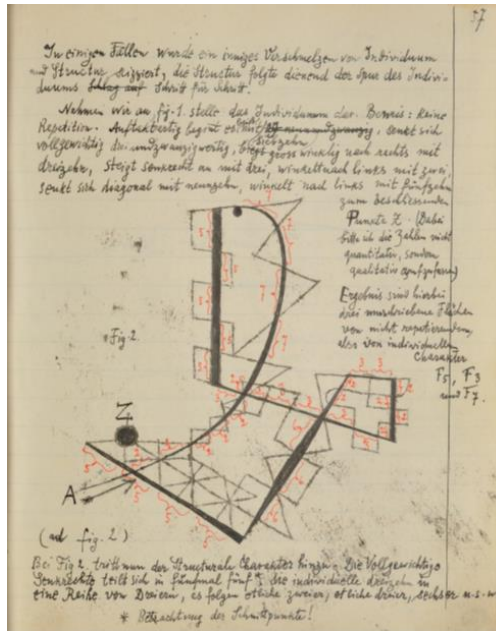 37
In einigen Fällen wurde ein inniges Verschmelzen von Individuum
und Structur skizziert, die Structur folgte dienend der Spur des Indivi-
duums Schritt für Schritt.
Nehmen wir an, fig. 1. stelle das Individuum dar. Beweis: keine
Repetition. Auftaktartig beginnt es mit siebzehn, senkt sich
vollgewichtig dreiundzwanzigwertig, biegt grosswinklig nach rechts mit
dreizehn, steigt senkrecht an mit drei, winkelt nach links mit zwei,
senkt sich diagonal mit neunzehn, winkelt nach links mit fünfzehn
zum beschliessenden
Punkte Z. (Dabei
bitte ich die Zahlen nicht
quantitativ, sondern
qualitativ aufzufassen)
Ergebnis sind hierbei
drei umschriebene Flächen
von nicht repetierendem,
also von individuellem
Charakter
F5, F3
und F7.
Fig 2.
Z
A
(auf fig. 2)
Bei Fig 2. tritt nun der Structurale Charakter hinzu. Die Vollgewichtige
Senkrechte teilt sich in fünfmal fünf, die individuelle dreizehn in
eine Reihe von Dreiern, es folgen etliche zweier, etliche dreier, sechser u.s.w
* Betrachtung der Schnittpunkte!